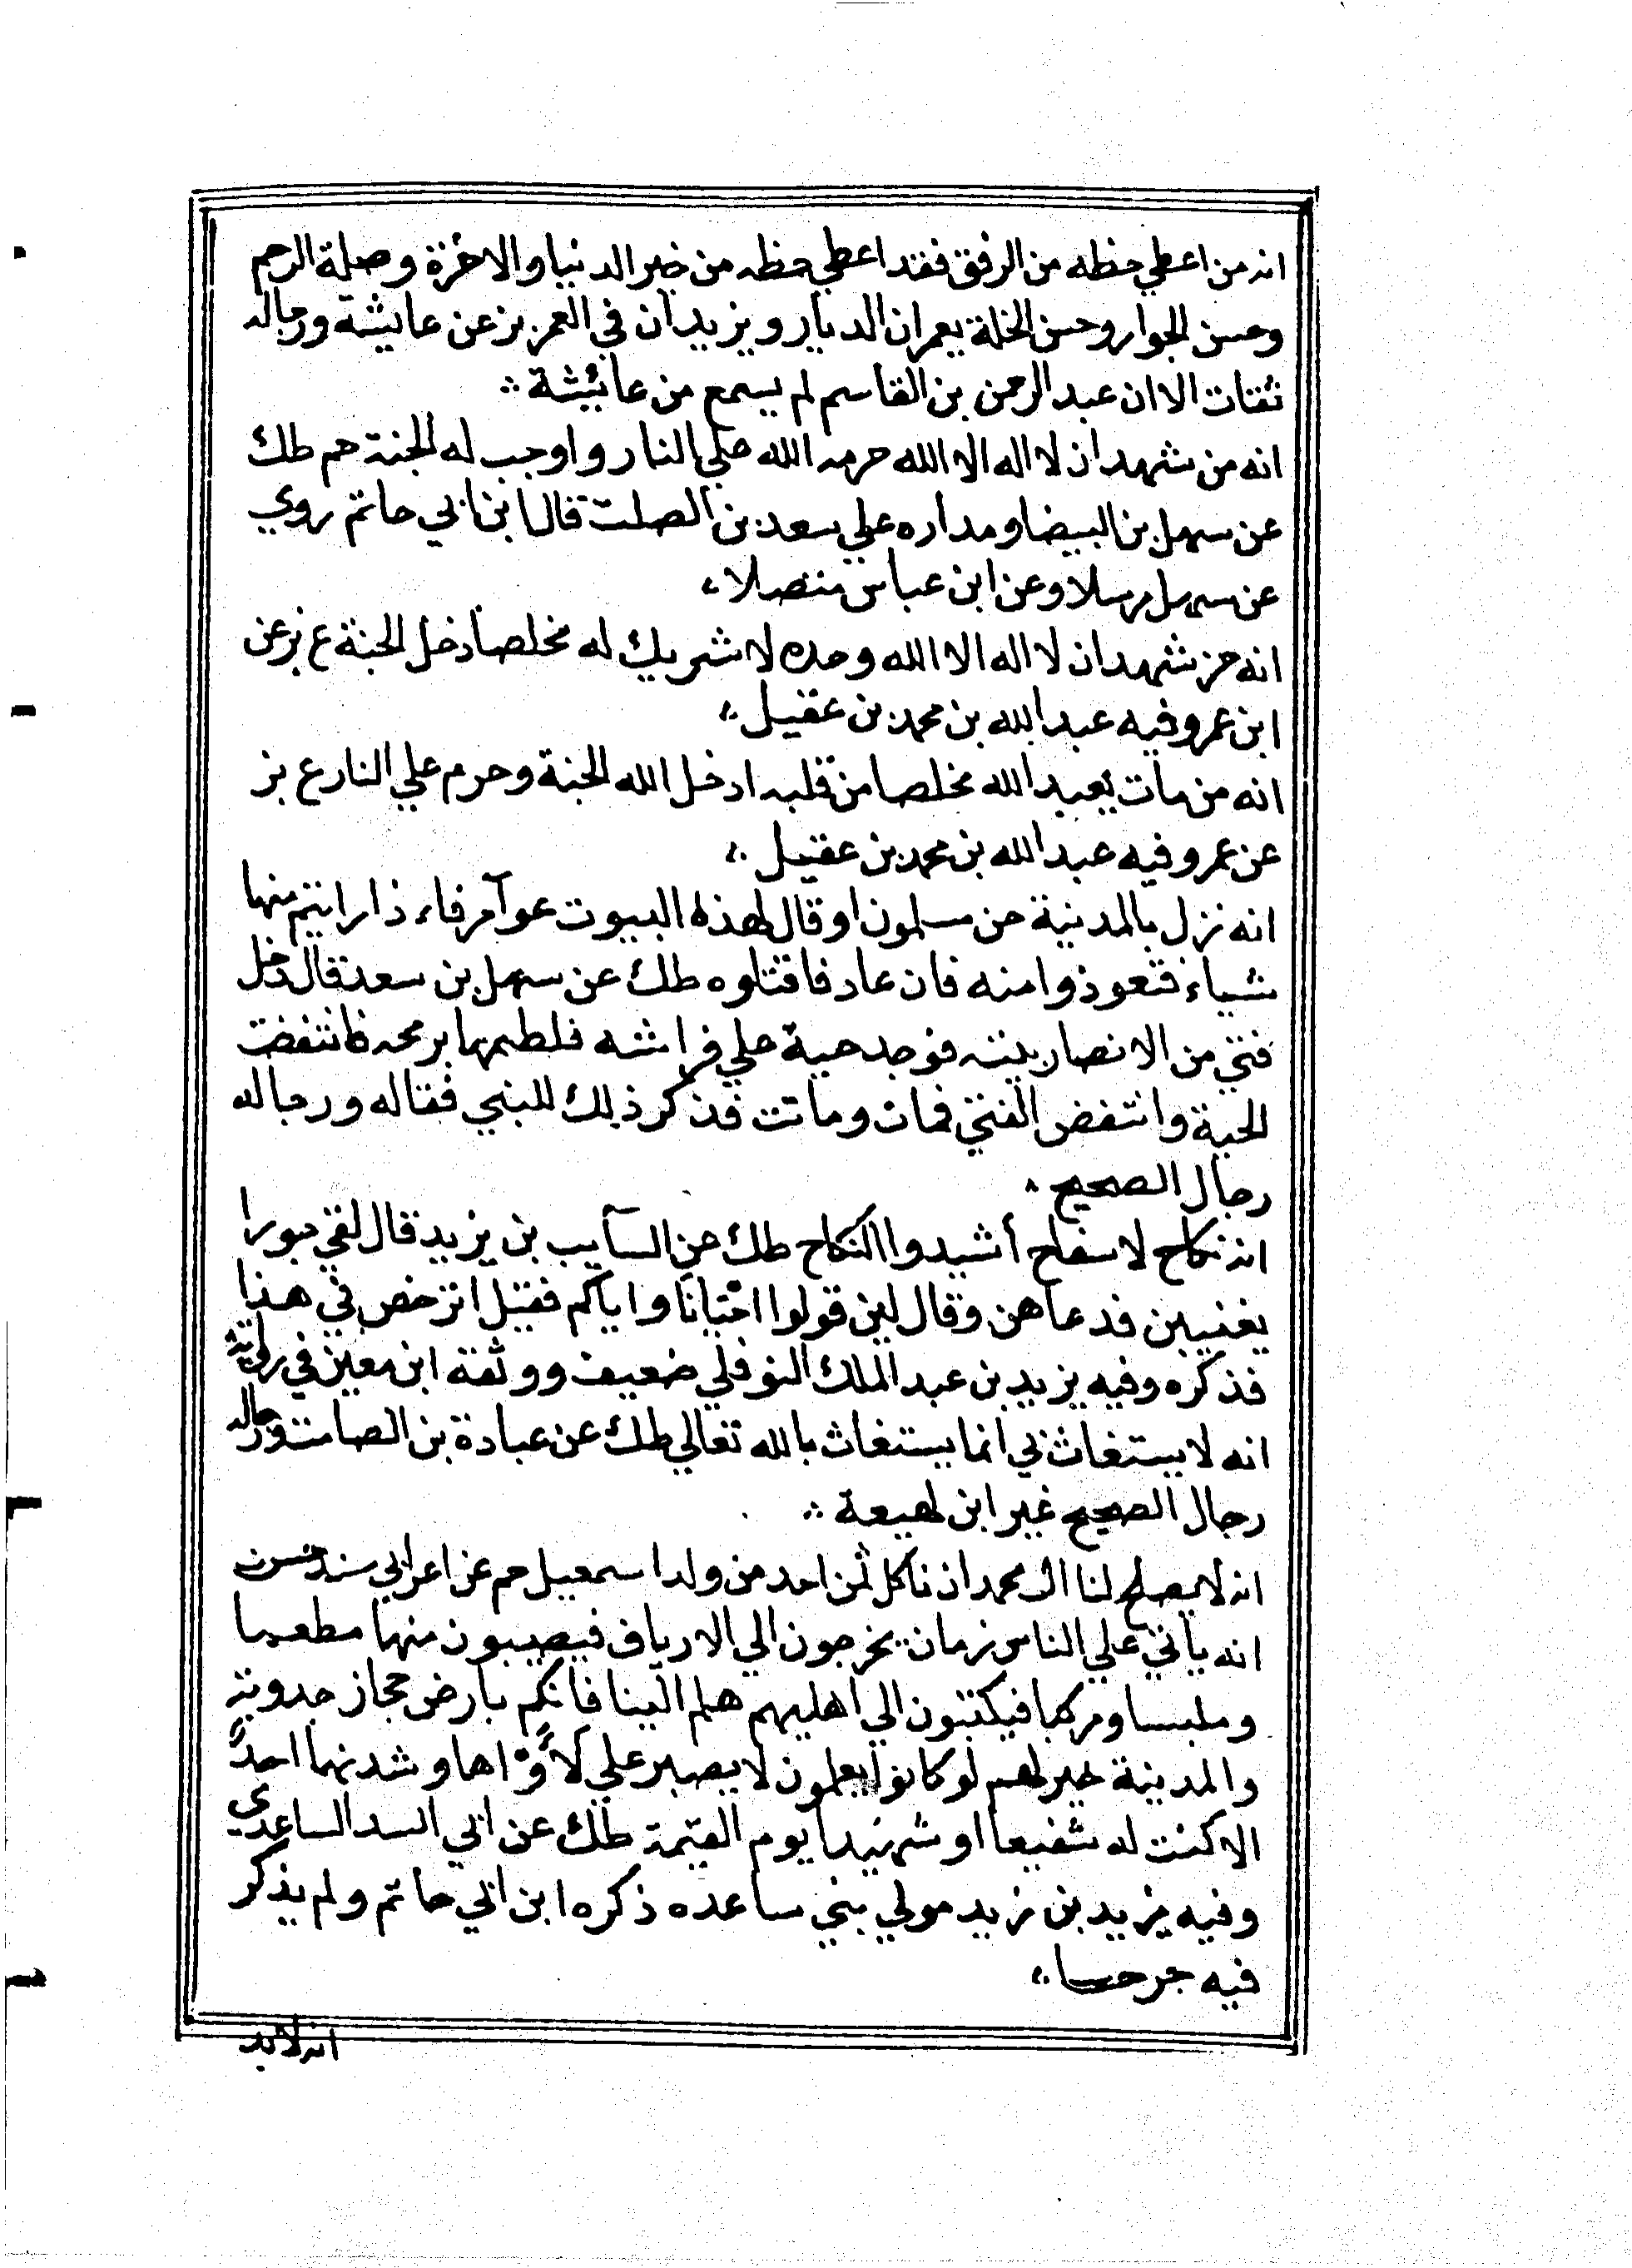 انه من اعطي حظه من الرفق فقد اعطي حظه من خير الدنيا والاخرة وصلة الرحم
وحسن الجوار وحسن الخلة يعمران الديار ويزيدان في العمر بز عن عايشة ورجاله
ثقات الا ان عبد الرحمن بن القاسم لم يسمع من عائشة
انه من شهد ان لا اله الا الله حرمه الله علي النار واوجب له الجنة حم طك
عن سهل بن البيضا ومداره علي سعد بن الصلت قال ابن ابي حاتم روي
عن سهل مرسلا وعن ابن عباس متصلا
انه من شهد ان لا اله الا الله وحده لا شريك له مخلصا دخل الجنة ع بز عن
ابن عمر وفيه عبد الله بن محمد بن عقيل
انه من مات يعبد الله مخلصا من قلبه ادخل الله الجنة وحرم علي النار ع بز
عن عمر وفيه عبد الله بن محمد بن عقيل
انه نزل بالمدينة جن مسلمون او قال لهذه البيوت عوآمر فاء ذا رايتم منها
شياء فتعوذوا منه فان عاد فاقتلوه طك عن سهل بن سعد قال دخل
فتي من الانصار بيته فوجد حية علي فراشه فلطمها برمحه فانتفضت
الحية وانتفض الفتي فمات وماتت فذكر ذلك للنبي فقاله ورجاله
رجال الصحيح
انه نكاح لا سفاح أشيدوا النكاح طك عن السآيب بن يزيد قال لقي جورا
يغنيين فدعاهن وقال لهن قولوا احيانا واياكم فقيل اترخص في هذا
فذكره وفيه يزيد بن عبد الملك النوفلي ضعيف ووثقة ابن معين في رواية
انه لا يستغاث بي انما يستغاث بالله تعالي طك عن عبادة بن الصامت ورجاله
رجال الصحيح غير ابن لهيعة
انه لا يصلح لنا ال محمد ان ناكل ثمن احد من ولد اسمعيل حم عن اعرابي سند حسن
انه ياتي علي الناس زمان يخرجون الي الارياف فيصيبون منها مطعما
وملبسا ومركبا فيكتبون الي اهليهم هلم الينا فانكم بارض حجاز جدوبة
والمدينة خير لهم لو كانوا يعلمون لا يصبر علي لأواها وشدتها احد
الا كنت له شفيعا او شهيدا يوم القيمة طك عن ابي اسيد الساعدي
وفيه يزيد بن زيد مولي بني ساعده ذكره ابن ابي حاتم ولم يذكر
فيه جرحا
انه لا بد